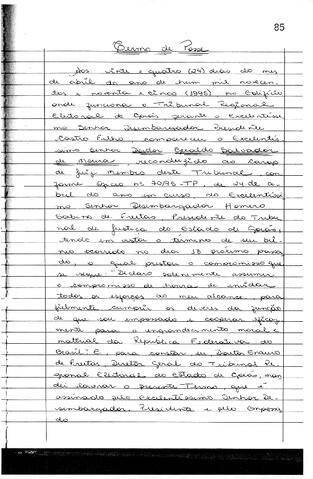 85
Termo de Posse
Aos vinte e quatro (24) dias do mes
de abril do ano de hum mil novecen-
tos e noventa e cinco (1995) no Edifício
onde funciona o Tribunal Regional
Eleitoral de Goiás perante o Excelentíssi-
mo Senhor Desembargador Presidente
Castro Filho compareceu o Excelentís-
simo senhor Doutor Geraldo Salvador
de Moura, reconduzido ao cargo
de Juiz Membro deste Tribunal con-
forme Ofício nº 70/95-TP, de 24 de a-
bril do ano em curso do Excelentíssi-
mo Senhor Desembargador Homero
Sabino de Freitas, Presidente do Tribu-
nal de Justiça do Estado de Goiás,
tendo em vista o término de seu bi-
ênio ocorrido no dia 18 próximo passa-
do. o qual prestou compromisso que
se segue: "Declaro solenemente assumir
o compromisso de honra de envidar
todos os esforços ao meu alcance, para
fielmente cumprir os deveres da função
de que sou empossado e cooperar eficaz-
mente para o engrandecimento moral e
material da República Federativa do
Brasil". E, para constar eu, Enauro
de Freitas, Diretor Geral do Tribunal Re-
gional Eleitoral do Estado de Goiás, man-
dei lavrar o presente Termo, que é
assinado pelo Excelentíssimo Senhor De-
sembargador Presidente e pelo empossa-
do